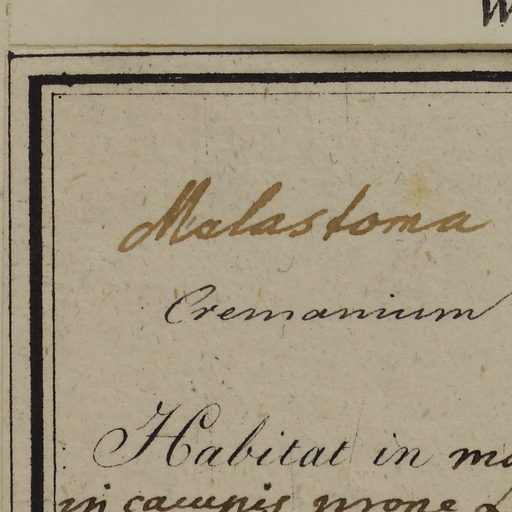 Melastoma
Cremanium
Habitat in
in campis prope